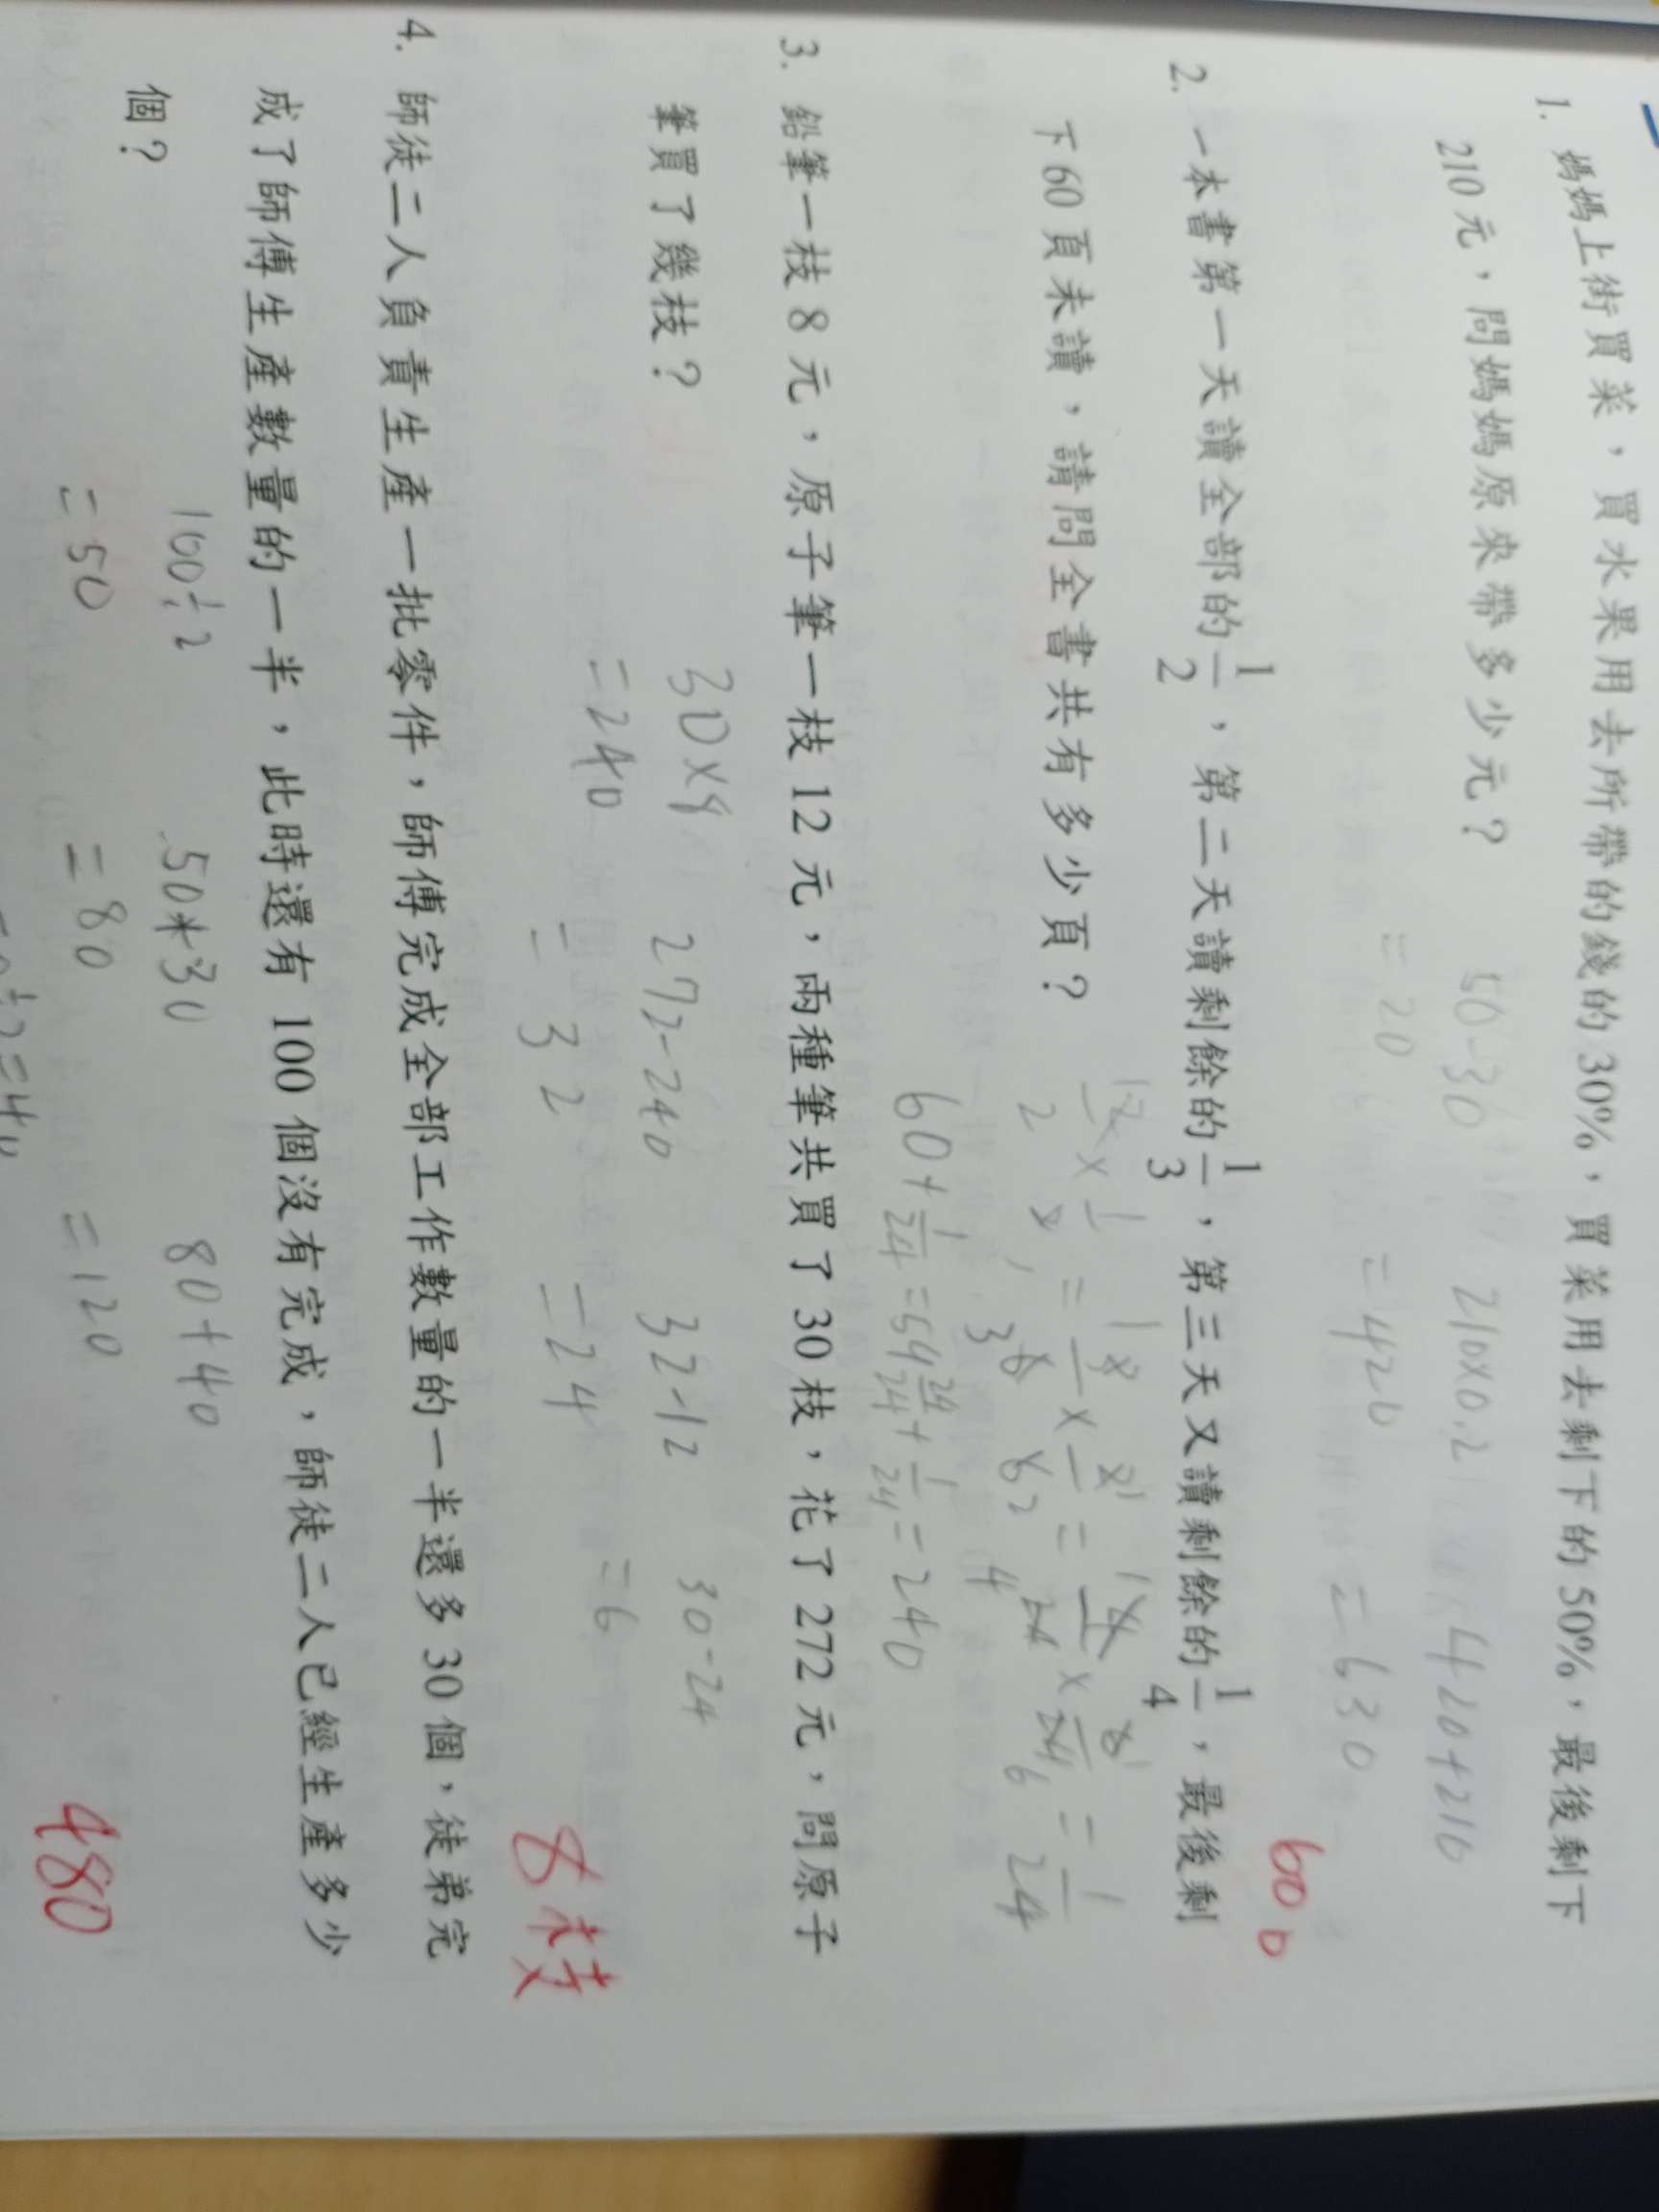 1. 媽媽上街買菜，買水果用去所帶的錢的 30%，買菜用去剩下的 50%，最後剩下
210 元，問媽媽原來帶多少元？
50-30 210×0.2 420+210
=20 =420 =630
600
2. 一本書第一天讀全部的 1/2，第二天讀剩餘的 1/3，第三天又讀剩餘的 1/4，最後剩
下 60 頁未讀，請問全書共有多少頁？
60+1/24=59 24/24+1/24=240
3. 鉛筆一枝 8 元，原子筆一枝 12 元，兩種筆共買了 30 枝，花了 272 元，問原子
筆買了幾枝？
30×8 272-240 32-12 30-24
=240 =32 =24 =6
8枝
4. 師徒二人負責生產一批零件，師傅完成全部工作數量的一半還多 30 個，徒弟完
成了師傅生產數量的一半，此時還有 100 個沒有完成，師徒二人已經生產多少
個？
100÷2 50+30 80+40
=50 =80 =120
480